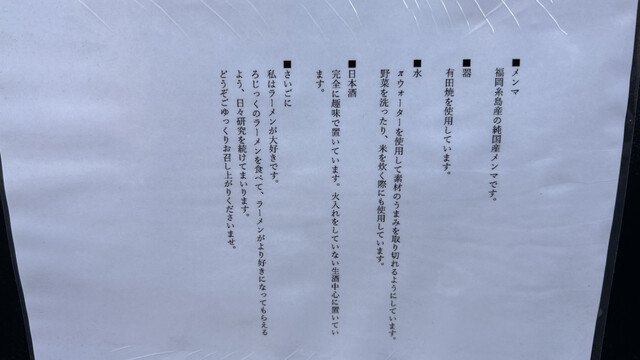 ■メンマ
福岡糸島産の純国産メンマです。
■器
有田焼を使用しています。
■水
πウォーターを使用して素材のうまみを取り切れるようにしています。
野菜を洗ったり、米を炊く際にも使用しています。
■日本酒
完全に趣味で置いています。火入れをしていない生酒中心に置いてい
ます。
■さいごに
私はラーメンが大好きです。
ろじっくのラーメンを食べて、ラーメンがより好きになってもらえる
よう、日々研究を続けてまいります。
どうぞごゆっくりお召し上がりくださいませ。